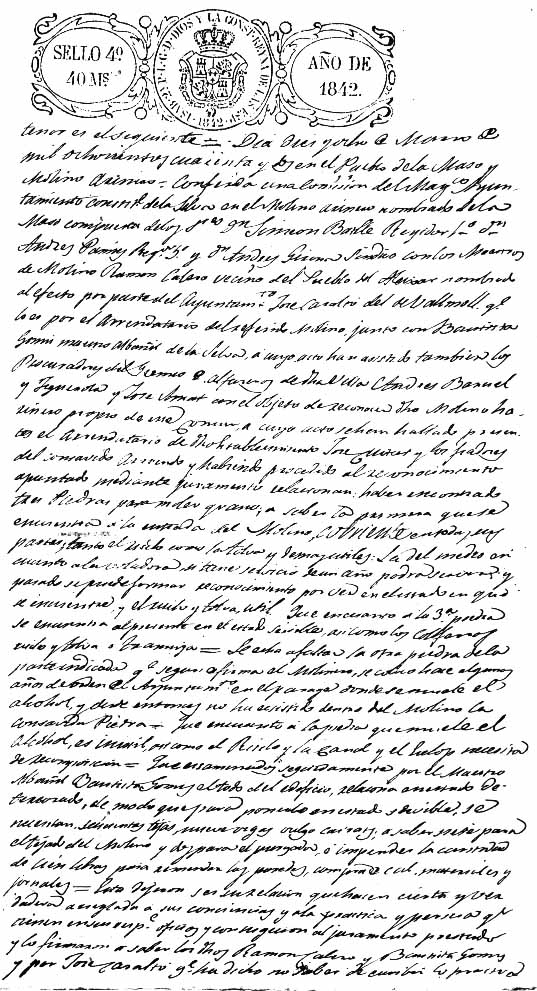 SELLO 4º
40 Ms
ISAB. 2ª P. L. G. D. DIOS Y LA CONST. REYNA DE LAS ESP. 1842
AÑO DE
1842.
tenor es el siguiente = Dia diez y ocho de Marzo de
mil ochocientos cuarenta y dos en el Pueblo de la Maso y
Molino Arinero = Conferida una Comision del Magco Ayun-
tamiento constitl de la Selva en el Molino arinero nombrado de la
Maso compuesta de los Sres Dn Simeon Batlle Regidor 1º Dn
Andres Pamies Regor 5º y Dn Andres Girona Sindico con los Maestros
de Molino Ramon Calero vecino del Pueblo del nombrado
al efecto por parte del Ayuntamto José Caralto del de Vallmoll qe
lo es por el Arrendatario del referido Molino, junto con Bautista
Gomis maestro Albañil de la Selva, á cuyo acto han asistido tambien los
Procuradores del Gremio de alfareros de dha Villa Andres Banuel
y Figuerola y José Amat con el objeto de reconocer dho Molino ha-
rinero propio de este Comun, a cuyo acto se han hallado presen-
tes el Arrendatario de dho establecimiento José y los fiadores
del consavido Arriendo y habiendo procedido al reconocimiento
apuntado mediante juramento relacionan; haber encontrado
tres Piedras para moler grano, a saber la primera que se
encuentra á la entrada del Molino, corriente en todas sus
partes, tanto el ruelo como la tolva y demas utiles: La del medio en
cuanto a la boladora si tiene servicio de un año podrá servir, y
pasado se puede formar reconocimiento por ver en el estado en que
se encuentre, y el ruelo y tolva, util. Que en cuanto a la 3ª piedra
se encuentra al presente en el estado servible, asi como los
ruelo y tolva o tramuja = Se echa a falta la otra piedra de la
parte indicada qe segun afirma el Molinero, se colocó hace algunos
años de orden del Ayuntamto en el parage donde se muele el
alcohol, y desde entonces no ha existido dentro del Molino la
consavida Piedra = Que en cuanto á la piedra que muele el
alcohol, es inutil, asi como el Riscle y la Canal y el necesita
de recomposicion = Que examinado seguidamente por el Maestro
Albañil Bautista Gomis el todo del edificio, relaciona en estado de-
teriorado, de modo que para ponerlo en estado servible, se
necesitan, seiscientas tejas, nueve vigas vulgo cairons, a saber siete para
el tejado del Molino y dos para el porgador, é impender la cantidad
de cien libras para remendar las paredes, compra de cal, materiales y
jornales = Esto dijeron ser su relacion que hacen cierta y ver-
dadera arreglada a sus conciencias y a la practica y pericia qe
tienen en sus respvos oficios y con sugecion al juramento prestado
y lo firmaron a saber los dhos Ramon Calero y Bautista Gomis
y por José Caralto qe ha dicho no saber de escribir lo practica